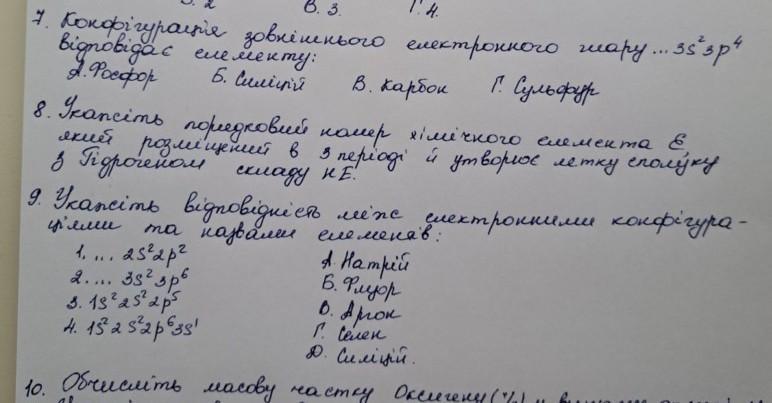 В. 3. Г. 4.
7. Конфігурація зовнішнього електронного шару ... 3s²3p⁴
відповідає елементу:
А. Фосфор Б. Силіцій В. Карбон Г. Сульфур
8. Укажіть порядковий номер хімічного елемента Е,
який розміщений в 3 періоді й утворює летку сполуку
з Гідрогеном складу НЕ.
9. Укажіть відповідність між електронними конфігура-
ціями та назвами елементів:
1. ... 2s²2p² А. Натрій
2. ... 3s²3p⁶ Б. Флуор
3. 1s²2s²2p⁵ В. Аргон
4. 1s²2s²2p⁶3s¹ Г. Селен
Д. Силіцій.
10. Обчисліть масову частку Оксигену (%)